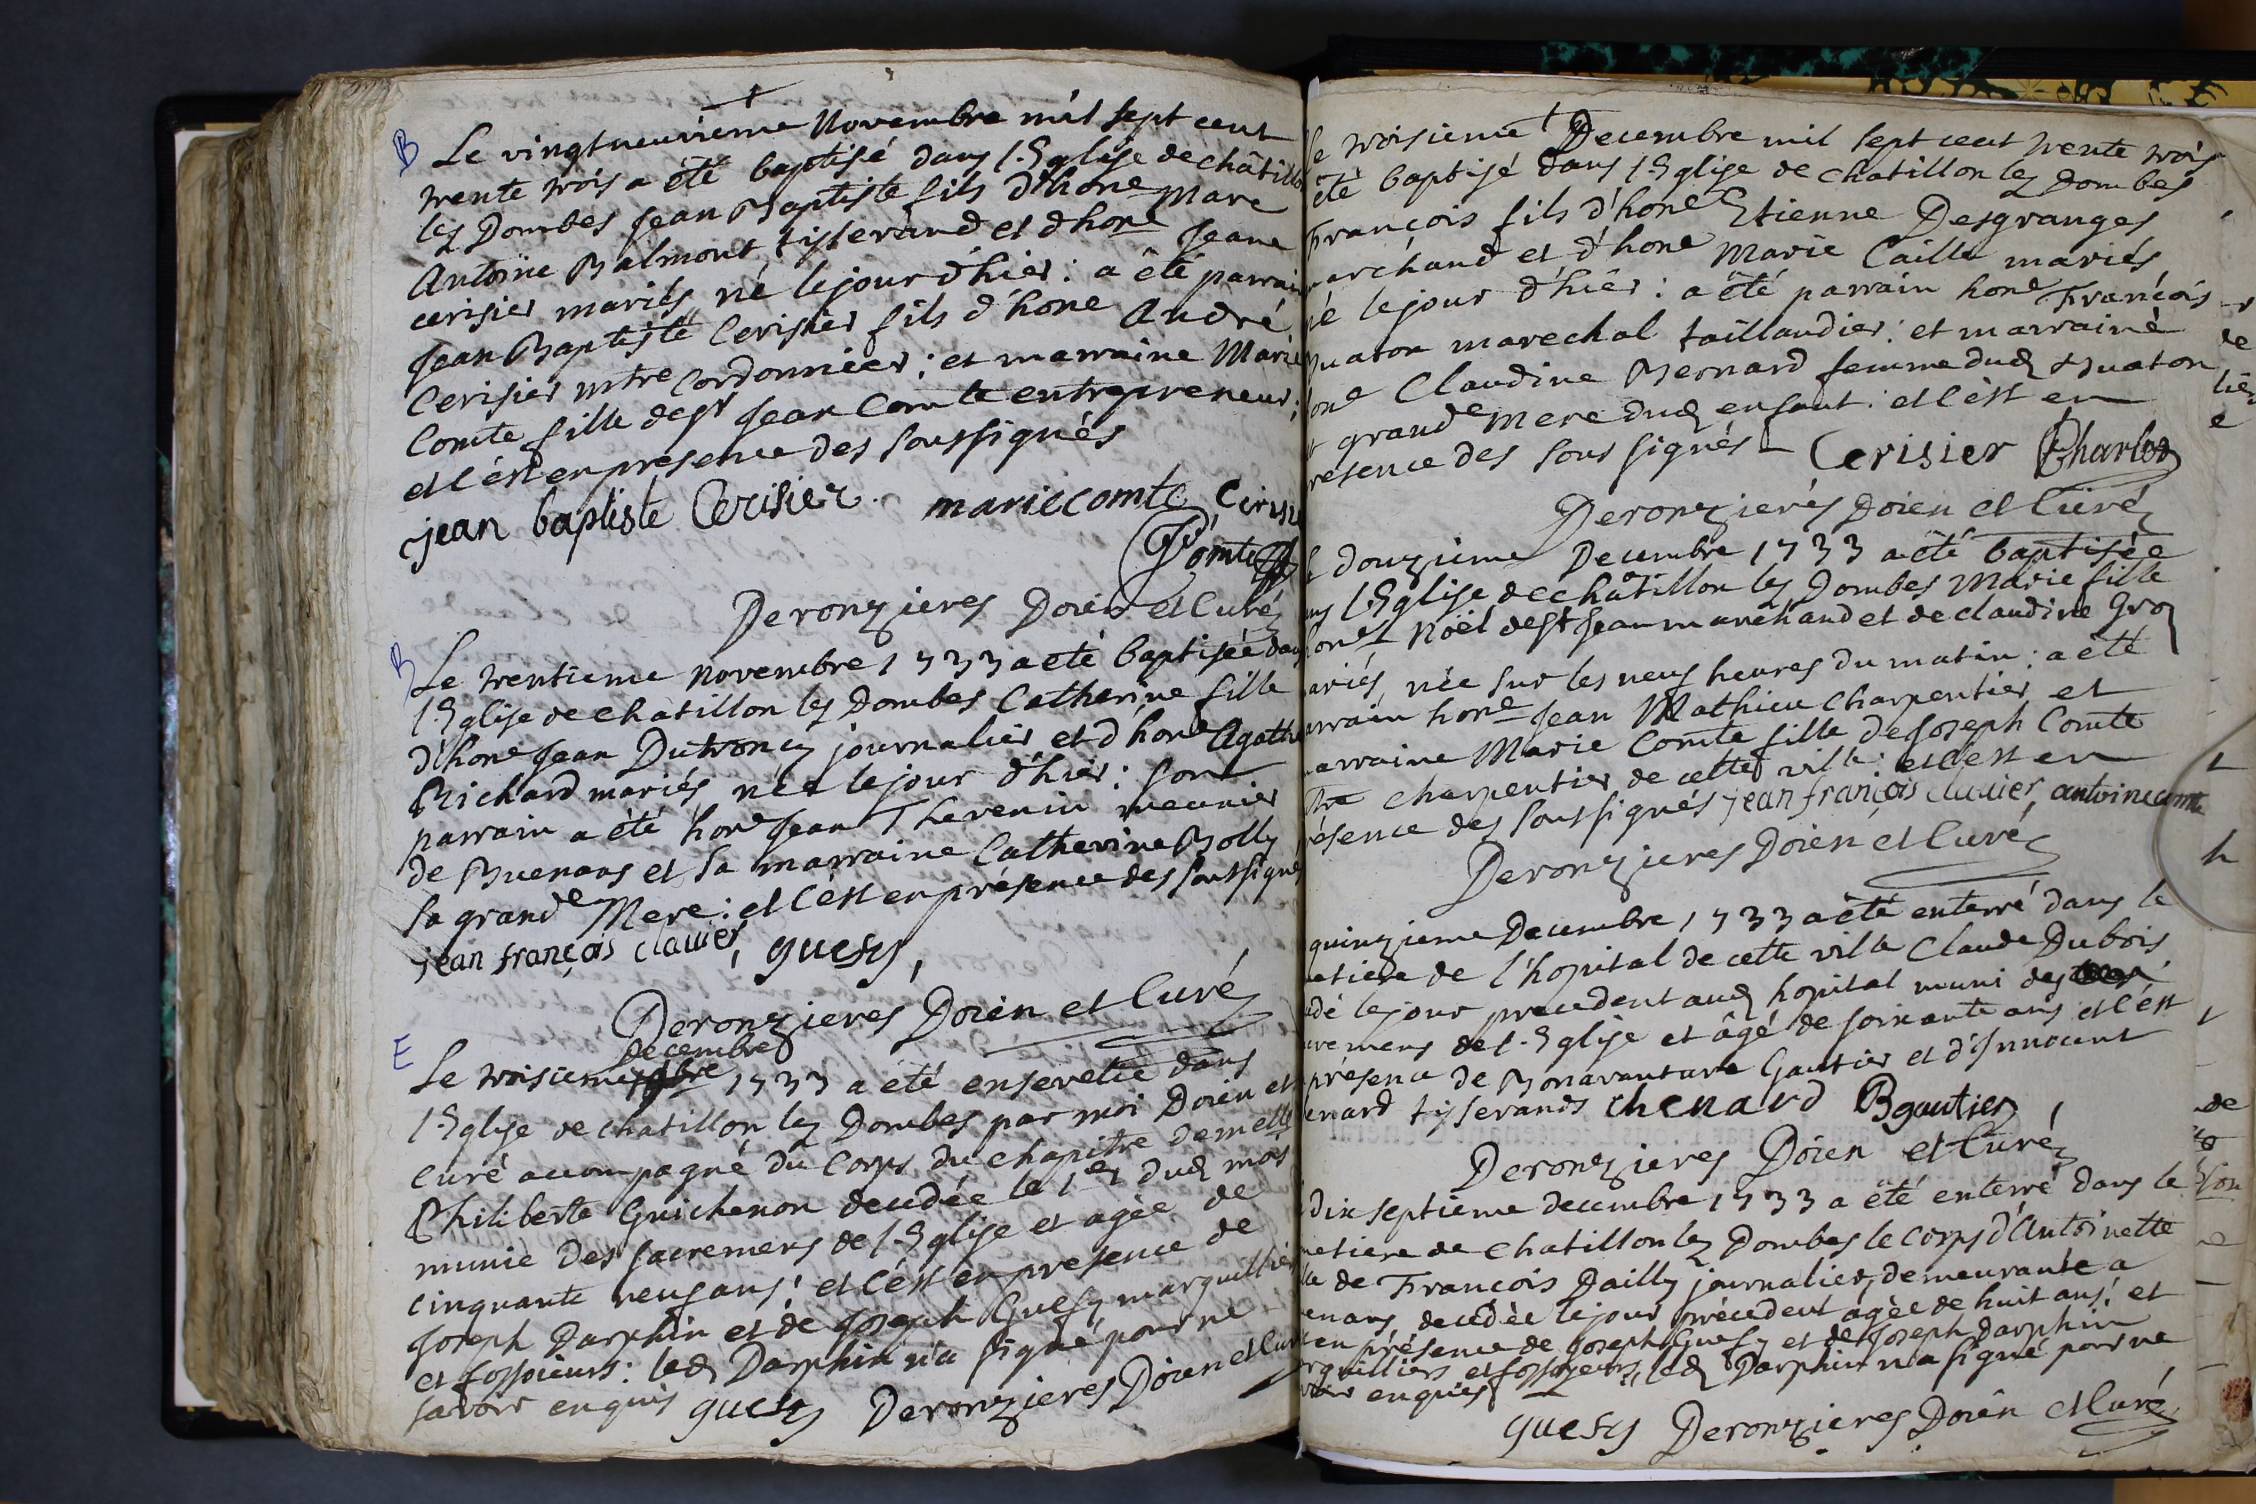 B Le vingtneuvieme Novembre mil sept cent
trente trois a été baptisé dans l'Eglise de châtillo
lez Dombes Jean Baptiste fils d'hone Marc
Antoine Balmont tisserand et d'hone Jeane
cerisier mariés né le jour d'hier: a été parrain
Jean Baptiste Cerisier fils d'hone André
Cerisier mtre Cordonnier; et marraine Marie
Comte fille de sr Jean Comte entrepreneur;
et c'est en presence des soussignés
jean baptiste Cerisier marie comte Cerisie
Comte
Deronzieres Doien et Curé
B Le trentieme Novembre 1733 a été baptisée dans
l'Eglise de chatillon lez Dombes Catherine fille
d'hone Jean Dutroncy journalier et d'hone Agathe
Richard mariés née le jour d'hier: son
parrain a été hone Jean Thevenin meunier
de Buenans et sa marraine Catherine Bolly
sa grande Mere: et c'est en présence des soussignés
jean françois clavier, guesy,
Deronzieres Doien et Curé
decembre
E Le troisieme 1733 a été ensevelie dans
l'Eglise de chatillon lez Dombes par moi Doien et
Curé accompagné du Corps du chapitre demelle
Philiberte Guichenon decedée le 1er dud mois
munie des sacremens de l'Eglise et agée de
cinquante neuf ans: et c'est en presence de
Joseph Darphin et de Joseph Guesy marguillier
et fossoieurs: led Darphin n'a signé pour ne
savoir enquis guesy Deronzieres Doien et Curé
le troisieme Decembre mil sept cent trente trois
été baptisé dans l'Eglise de chatillon lez Dombes
François fils d'hone Etienne Desgranges
marchand et d'hone Marie Caille mariés
né le jour d'hier: a été parrain hone François
Buaton marechal taillandier: et marraine
hone Claudine Bernard femme dud Buaton
et grande Mere dud enfant: et c'est en
resence des sous signés Cerisier Charles
Deronzieres Doien et Curé
le douzieme Decembre 1733 a été baptisée
ns l'Eglise de châtillon lez Dombes Marie fille
hone Noël de St Jean marchand et de claudine Gro
ariés, née sur les neuf heures du matin: a été
arrain hone Jean Mathieu charpentier et
arraine Marie Comte fille de Joseph Comte
tre charpentier de cette ville: et c'est en
résence des soussignés jean françois clavier, antoine comte
Deronzieres Doien et Curé
quinzieme Decembre 1733 a été enterré dans le
metiere de l'hopital de cette ville Claude Dubois
édé le jour precedent aud hopital muni des
cremens de l'Eglise et âgé de soixante ans et c'est
présence de Bonavanture Gautier et d'Innocent
enard tisserands chenard B gautier
Deronzieres Doien et Curé
dix septieme decembre 1733 a été enterré dans le
metiere de chatillon lez Dombes le corps d'Antoinette
lle de François Dailly journalier, demeurante a
enans decedée le jour précedent agée de huit ans: et
t en présence de Joseph Guesy et de Joseph Darphin
rguilliers et fossoyeurs, led Darphin n'a signé pour ne
avoir enquis
guesy Deronzieres Doien et Curé